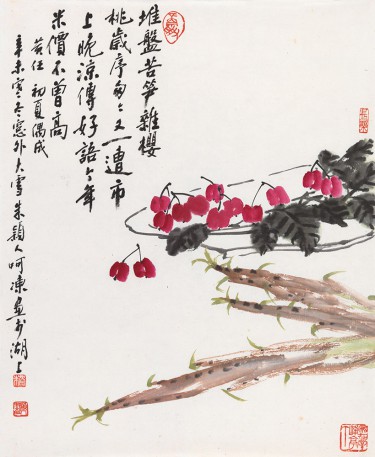 堆盤苦筍雜櫻
桃歲序匆匆又一遭市
上晚涼傳好語今年
米價不曾高
苦任 初夏偶成
辛未寒冬窓外大雪朱穎人呵凍畫於湖上